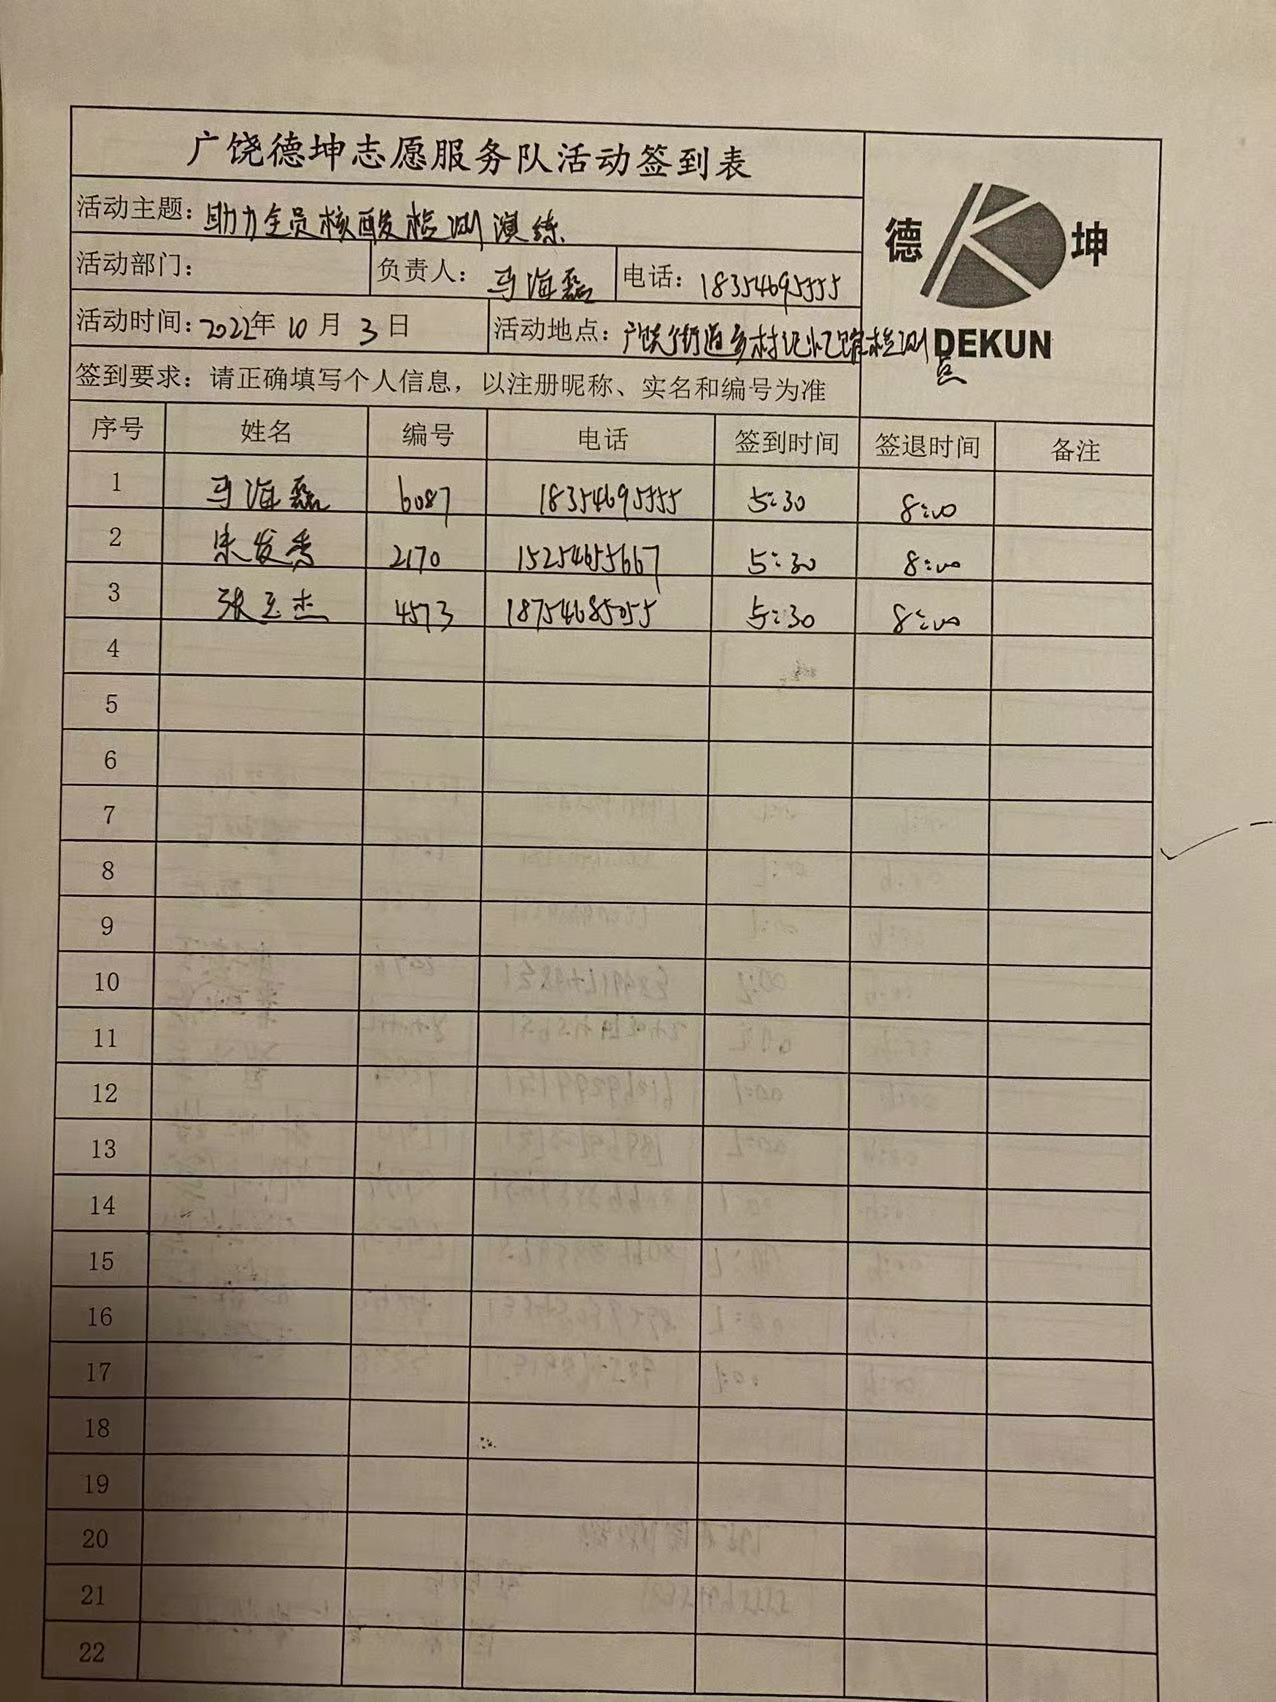 广饶德坤志愿服务队活动签到表
德 坤
DEKUN
活动主题：助力全员核酸检测演练
活动部门： 负责人：马海磊 电话：18354695555
活动时间：2022年10月3日 活动地点：广饶街道乡村记忆馆检测点
签到要求：请正确填写个人信息，以注册昵称、实名和编号为准
序号 姓名 编号 电话 签到时间 签退时间 备注
1 马海磊 6087 18354695555 5:30 8:00
2 宋发秀 2170 15254655667 5:30 8:00
3 张玉杰 4573 18754685055 5:30 8:00
4
5
6
7
8
9
10
11
12
13
14
15
16
17
18
19
20
21
22